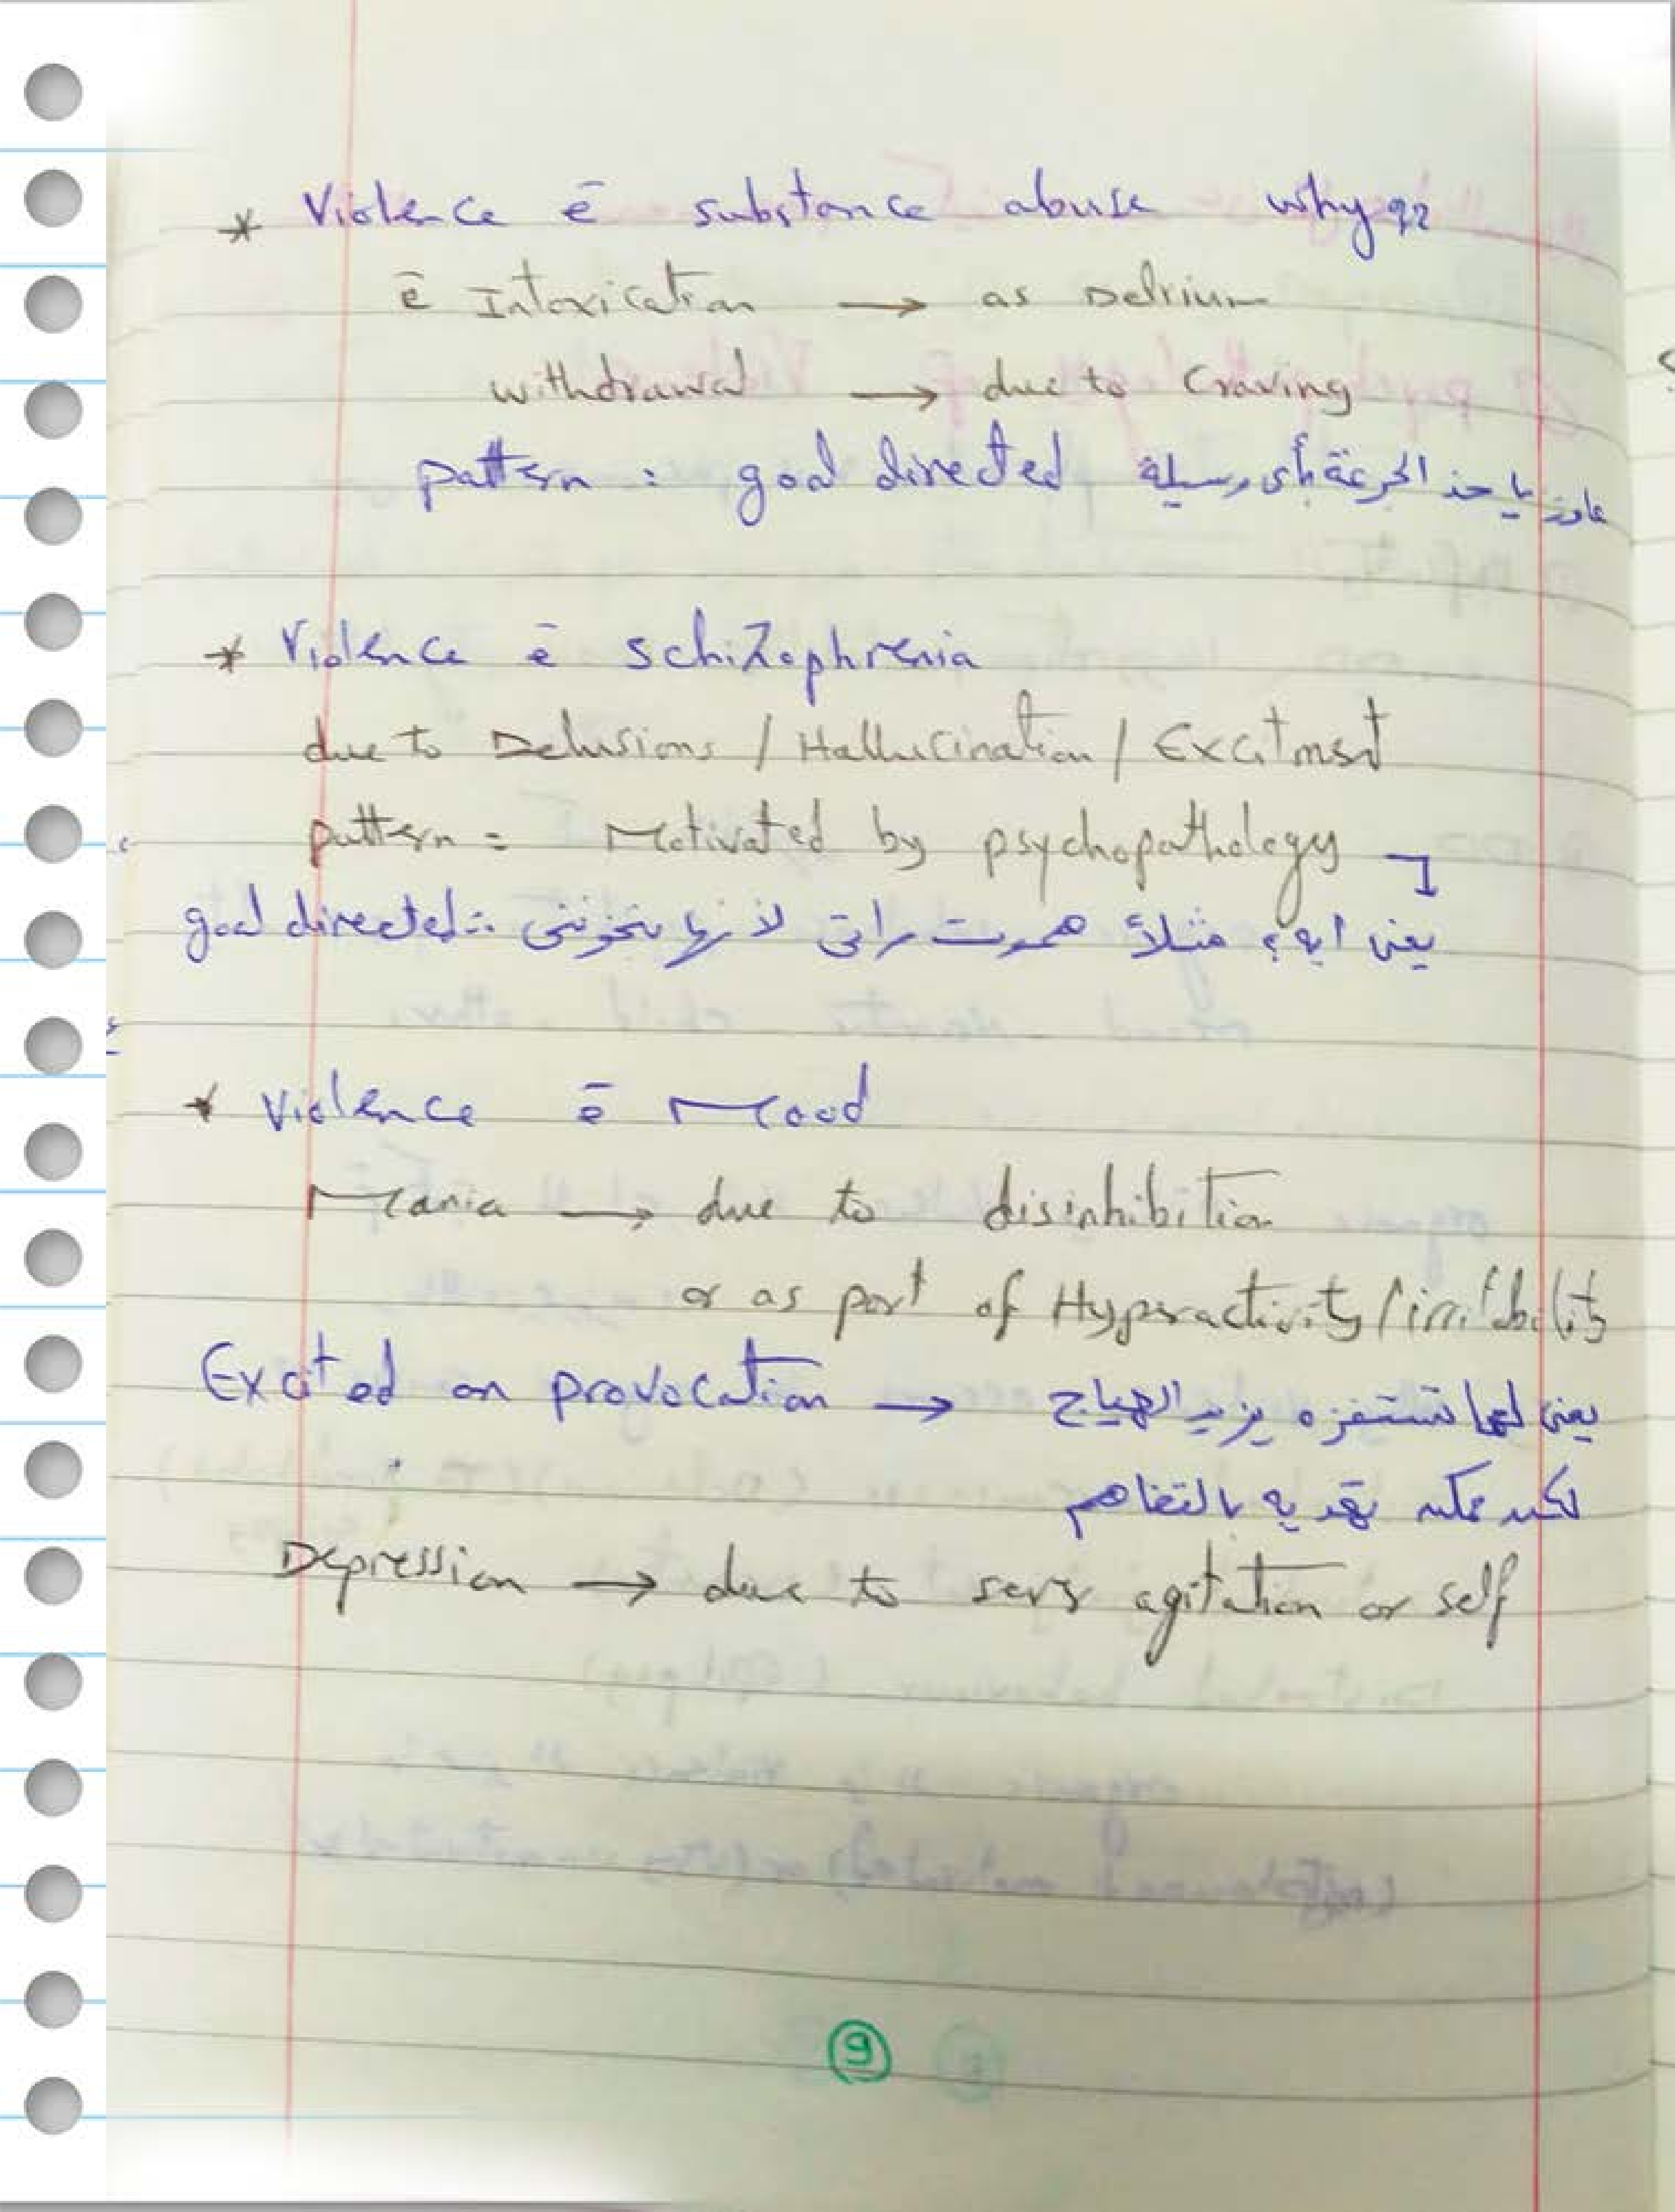 * Violence ē substance abuse why??
ē Intoxication → as Delirium
withdrawal → due to Craving
pattern : goal directed عاوز ياخذ الجرعة بأى وسيلة
* Violence ē schizophrenia
due to Delusions / Hallucination / Excitment
pattern = Motivated by psychopathology
يعنى ايه؟ مثلاً هموت مراتى لأنها بتخوننى ∴ goal directed
* Violence ē Mood
Mania → due to disinhibition
or as part of Hyperactivity / irritability
Excited on provocation → يعنى لما تستفزه يزيد الهياج
لكن ممكن تهديه بالتفاهم
Depression → due to serv agitation or self
9